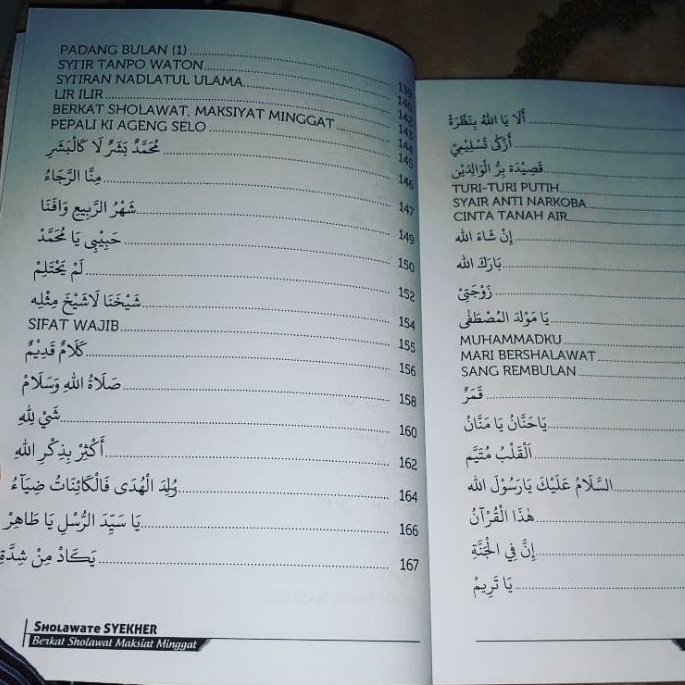 PADANG BULAN (1) ........ 139
SYI'IR TANPO WATON ........ 140
SYI'IRAN NADLATUL ULAMA ........ 142
LIR ILIR ........ 143
BERKAT SHOLAWAT, MAKSIYAT MINGGAT ........ 144
PEPALI KI AGENG SELO ........ 145
مُحَمَّدٌ بَشَرٌ لَا كَالْبَشَرِ ........ 146
مِنَّا الرَّجَاءُ ........ 147
شَهْرُ الرَّبِيعِ وَافَنَا ........ 149
حَبِيْبِي يَا مُحَمَّدْ ........ 150
لَمْ يَحْتَلِمْ ........ 152
شَيْخَنَا لَاشَيْخَ مِثْلِهِ ........ 154
SIFAT WAJIB ........ 155
كَلَامٌ قَدِيْمٌ ........ 156
صَلَاةُ اللهِ وَسَلَامْ ........ 158
شَيْ لِلّٰهِ ........ 160
أَكْثِرْ بِذِكْرِ اللهِ ........ 162
وُلِدَ الْهُدَى فَالْكَائِنَاتُ ضِيَآءُ ........ 164
يَا سَيِّدَ الرُّسْلِ يَا طَاهِرْ ........ 166
يَكَادْ مِنْ شِدَّةِ ........ 167
SHOLAWATE SYEKHER
Berkat Sholawat Maksiat Minggat
أَلَا يَا اللهُ بِنَظْرَةْ ........
أَزْكَى تَسْلِيْمِيْ ........
قَصِيْدَة بِرُّ الْوَالِدَيْنِ ........
TURI-TURI PUTIH ........
SYAIR ANTI NARKOBA ........
CINTA TANAH AIR ........
إِنْ شَاءَ الله ........
بَارَكَ الله ........
زَوْجَتِيْ ........
يَا مَوْلِدَ المُصْطَفَى ........
MUHAMMADKU ........
MARI BERSHALAWAT ........
SANG REMBULAN ........
قَمَرٌ ........
يَاحَنَّانُ يَا مَنَّانُ ........
اَلْقَلْبُ مُتَيَّم ........
السَّلَامُ عَلَيْكَ يَارَسُوْلَ الله ........
هٰذَا الْقُرْآنُ ........
إِنَّ فِي الْجَنَّةِ ........
يَا تَرِيمْ ........